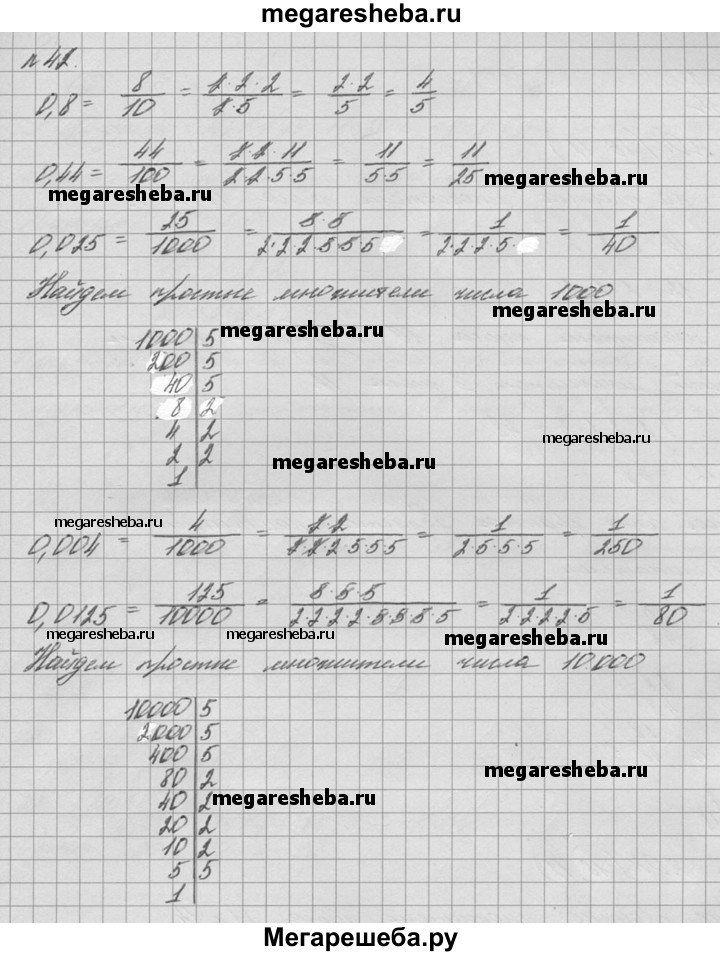 megaresheba.ru
№ 42.
0,8 = 8/10 = 2·2·2/2·5 = 2·2/5 = 4/5
0,44 = 44/100 = 2·2·11/2·2·5·5 = 11/5·5 = 11/25
megaresheba.ru
megaresheba.ru
0,025 = 25/1000 = 5·5/2·2·2·5·5·5 = 1/2·2·2·5 = 1/40
Найдем простые множители числа 1000
megaresheba.ru
1000|5
megaresheba.ru
200|5
40|5
8|2
4|2
megaresheba.ru
2|2
megaresheba.ru
1|
megaresheba.ru
0,004 = 4/1000 = 2·2/2·2·2·5·5·5 = 1/2·5·5·5 = 1/250
0,0125 = 125/10000 = 5·5·5/2·2·2·2·5·5·5·5 = 1/2·2·2·2·5 = 1/80
megaresheba.ru megaresheba.ru megaresheba.ru
Найдем простые множители числа 10000
10000|5
2000|5
400|5
megaresheba.ru
80|2
40|2
megaresheba.ru
20|2
10|2
5|5
1|
Мегарешеба.ру